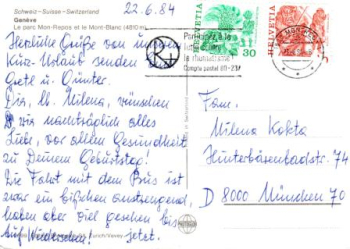 Schweiz-Suisse-Switzerland
Genève
Le parc Mon-Repos et le Mont-Blanc (4810 m)
22.6.84
HELVETIA
30
HELVETIA
Participez à la
lutte contre
le rhumatisme!
Compte postal 80-237
Herzliche Grüße von unserem
Kurz-Urlaub senden
Grete u. Günter.
Dir, lb. Milena, wünschen
wir nachträglich alles
Liebe, vor allem Gesundheit
zu Deinem Geburtstag!
Die Fahrt mit dem Bus ist
zwar ein bißchen anstrengend,
haben aber viel gesehen bis
jetzt.
Auf Wiedersehen!
Fam.
Milena Kokta
Hünterbäsenbadstr 74
D 8000 München 70